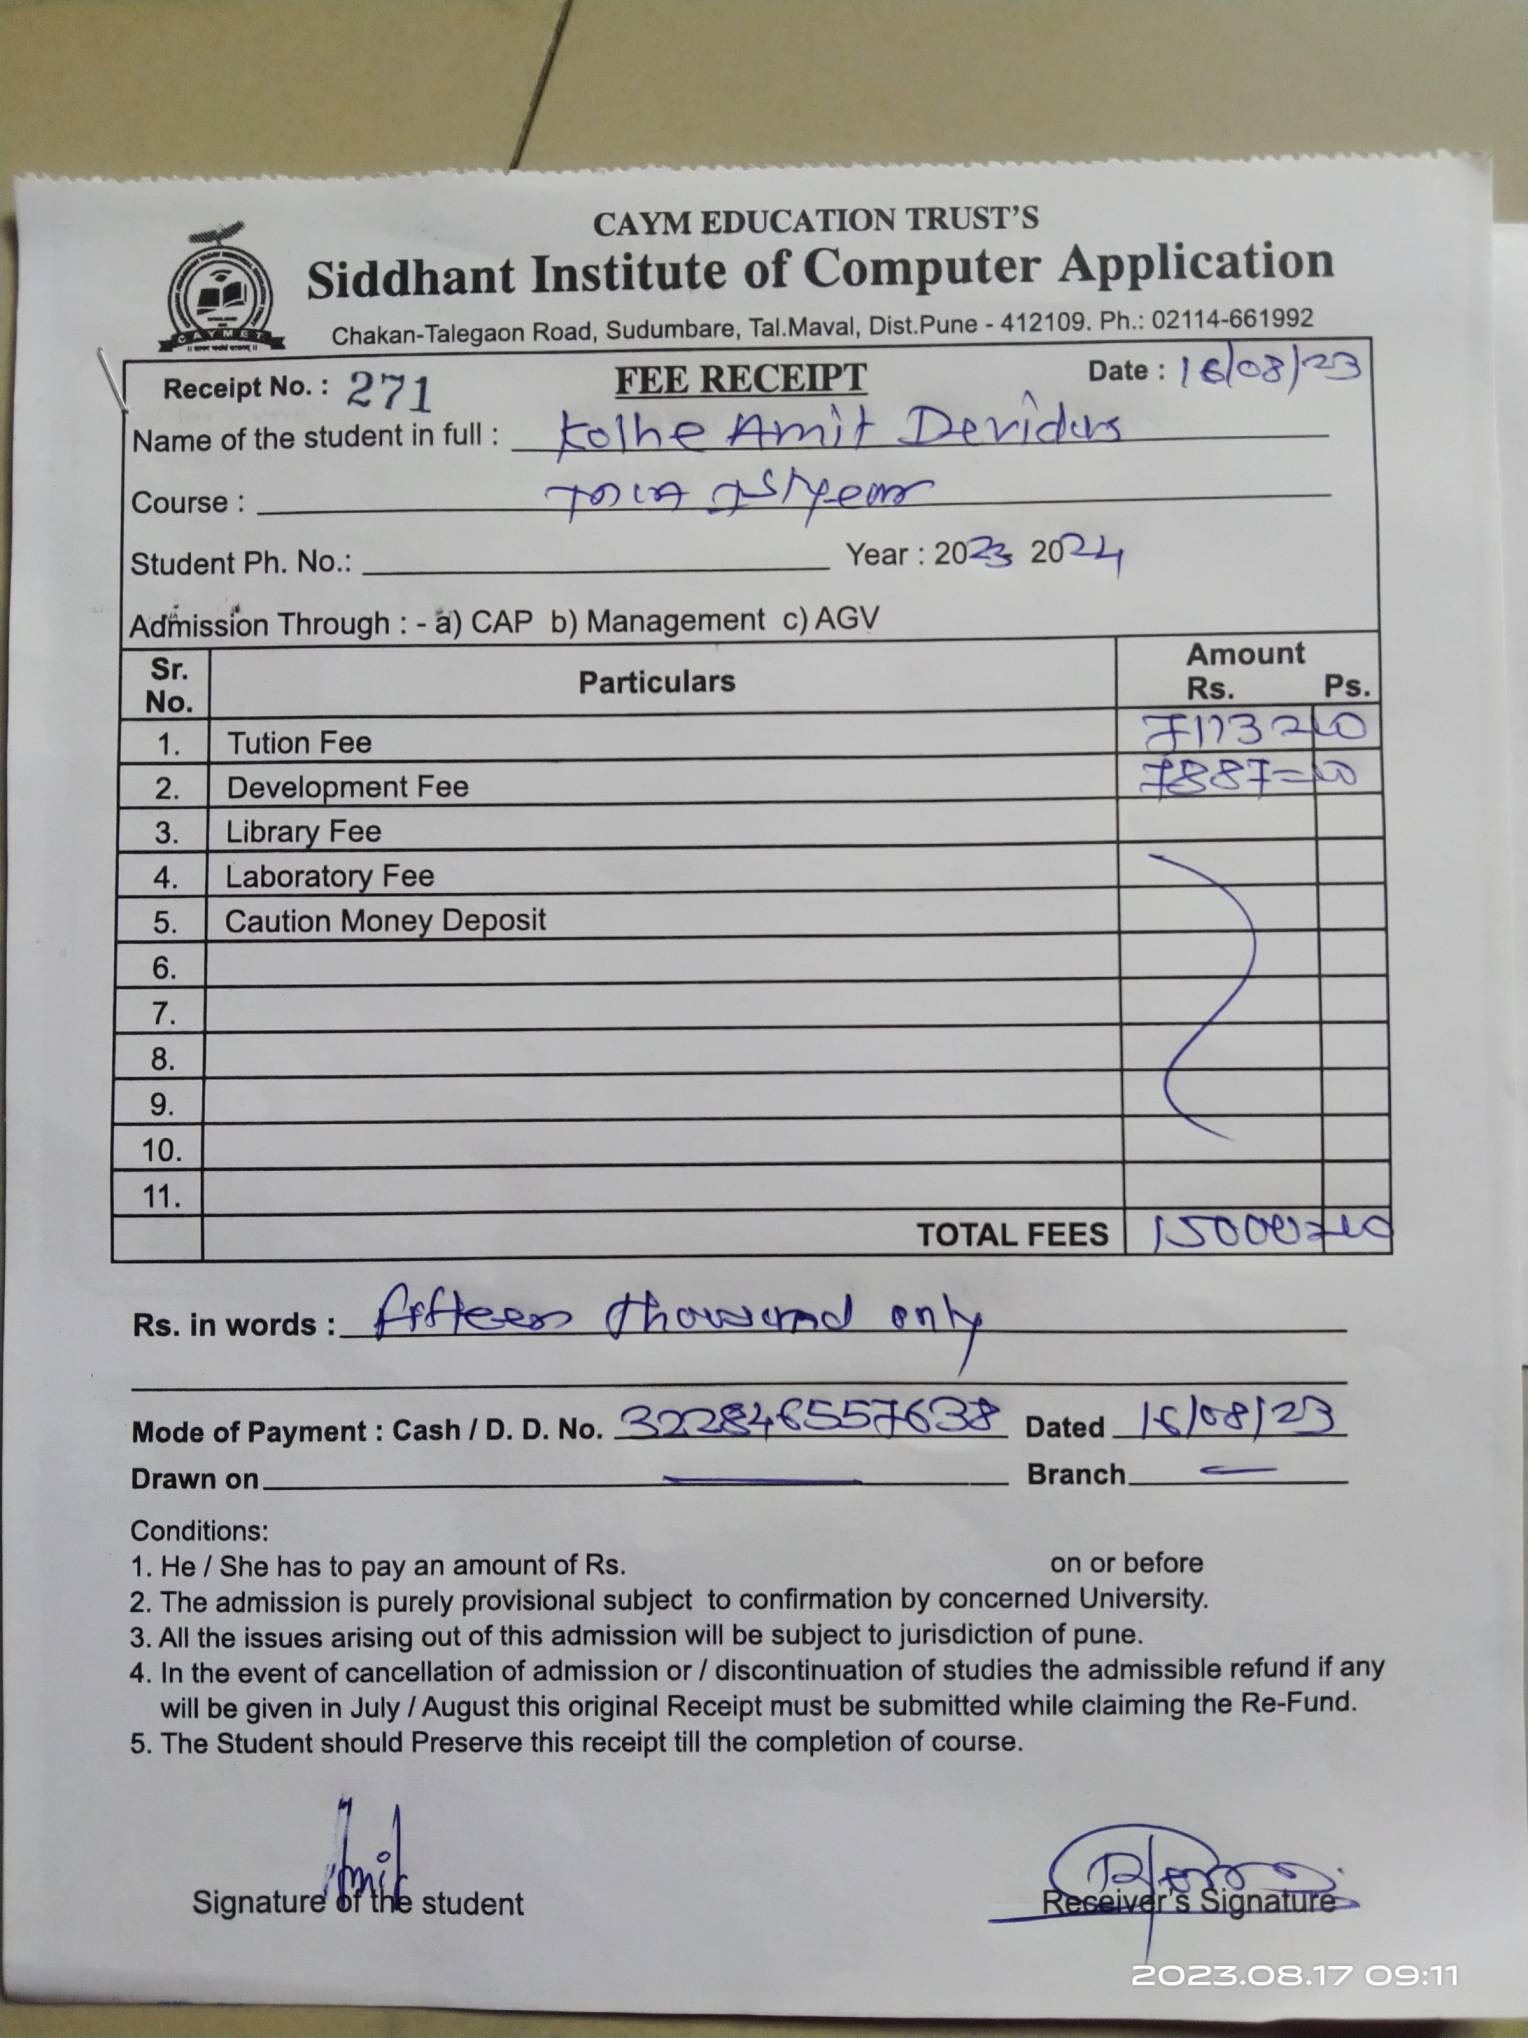 CAYM EDUCATION TRUST'S
Siddhant Institute of Computer Application
Chakan-Talegaon Road, Sudumbare, Tal.Maval, Dist.Pune - 412109. Ph.: 02114-661992
CAYMET
Receipt No. : 271 FEE RECEIPT Date : 16/08/23
Name of the student in full : Kolhe Amit Devidas
Course : Ist year
Student Ph. No.: Year : 2023 2024
Admission Through : - a) CAP b) Management c) AGV
Sr. No. Particulars Amount Rs. Ps.
1. Tution Fee 7113=00
2. Development Fee 7887=00
3. Library Fee
4. Laboratory Fee
5. Caution Money Deposit
6.
7.
8.
9.
10.
11.
TOTAL FEES 15000=00
Rs. in words : fifteen thousand only
Mode of Payment : Cash / D. D. No. 322846557638 Dated 16/08/23
Drawn on — Branch —
Conditions:
1. He / She has to pay an amount of Rs. on or before
2. The admission is purely provisional subject to confirmation by concerned University.
3. All the issues arising out of this admission will be subject to jurisdiction of pune.
4. In the event of cancellation of admission or / discontinuation of studies the admissible refund if any
will be given in July / August this original Receipt must be submitted while claiming the Re-Fund.
5. The Student should Preserve this receipt till the completion of course.
Amit
Signature of the student Receiver's Signature
2023.08.17 09:11